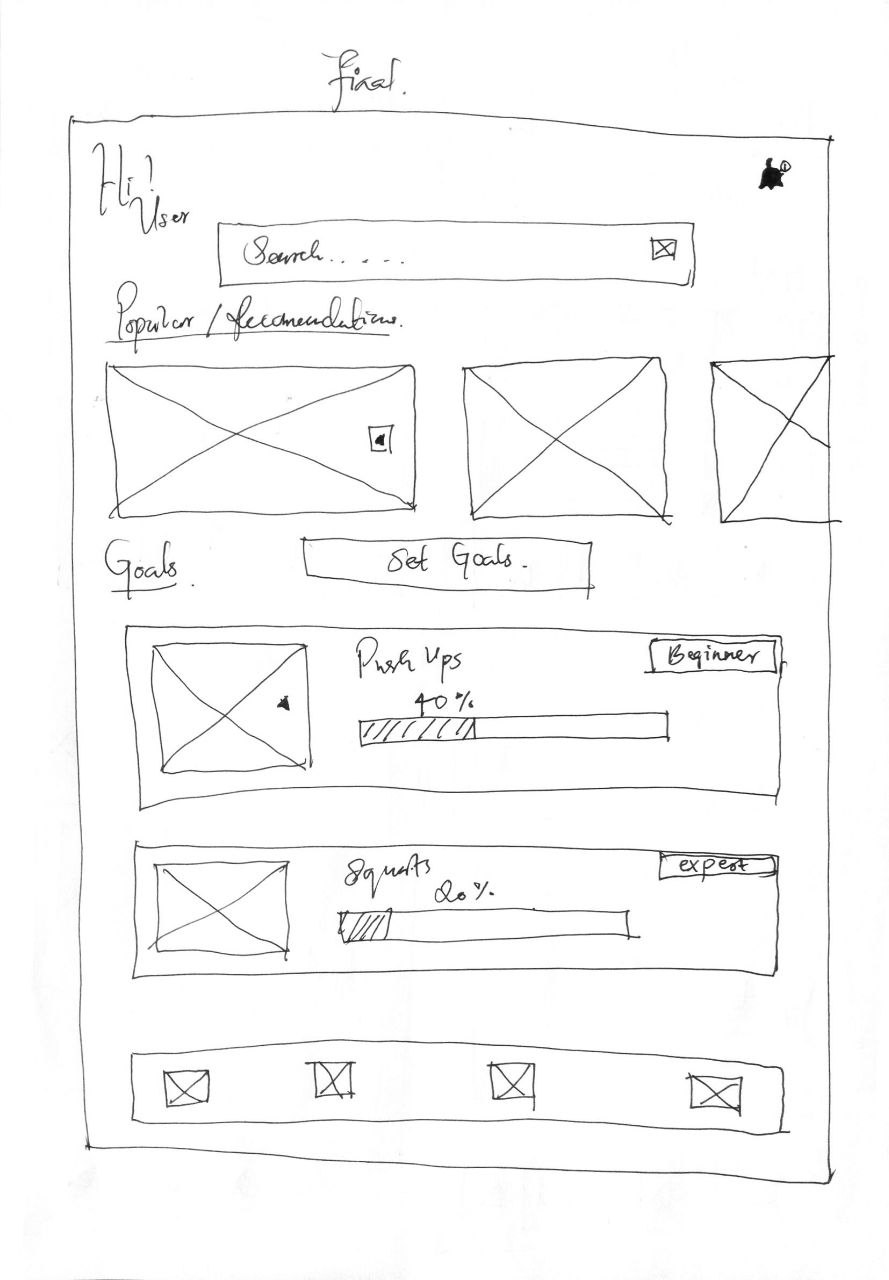 final.
Hi!
User
Search.....
Popular / Recomendations.
Goals.
Set Goals.
Push Ups
Beginner
40%
Squats
expert
20%